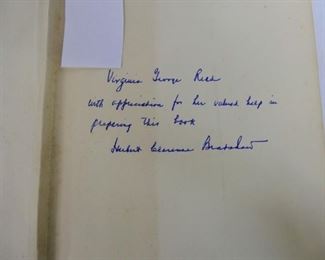 Virginia George Reed
with appreciation for her valued help in
preparing this book
Herbert Clarence Bradshaw